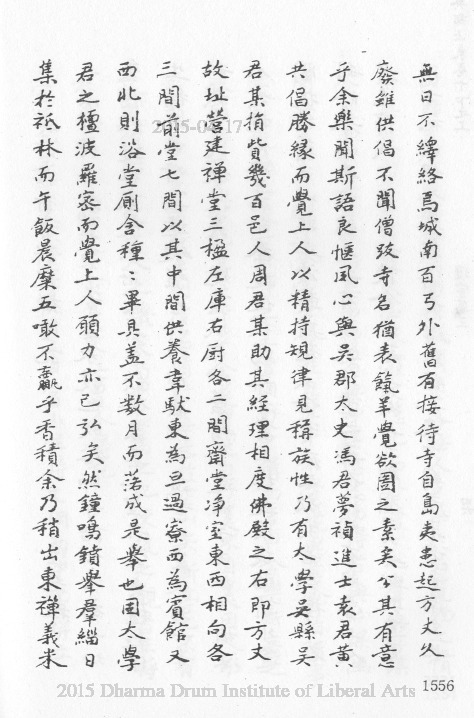 無日不繹絡焉城南百弓外舊有接待寺自島夷患起方丈久
廢雖供倡不聞僧跂寺名猶表餼羊覺欲圖之素矣公其有意
乎余樂聞斯語良愜夙心與吳郡太史馮君夢禎進士袁君黃
共倡勝緣而覺上人以精持規律見稱族性乃有太學吳縣吳
君某捐貲幾百邑人周君某助其經理相度佛殿之右即方丈
故址營建禪堂三楹左庫右厨各二間齋堂净室東西相向各
三間前堂七間以其中間供養韋馱東為旦過寮西為賓館又
西北則浴堂厠舍種〻畢具蓋不数月而落成是舉也固太學
君之檀波羅密而覺上人願力亦已弘矣然鐘鳴鑕舉羣緇日
集於祗林而午飯晨糜五噉不羸乎香積余乃稍出東禪義米
1556
2015-04-17
2015 Dharma Drum Institute of Liberal Arts